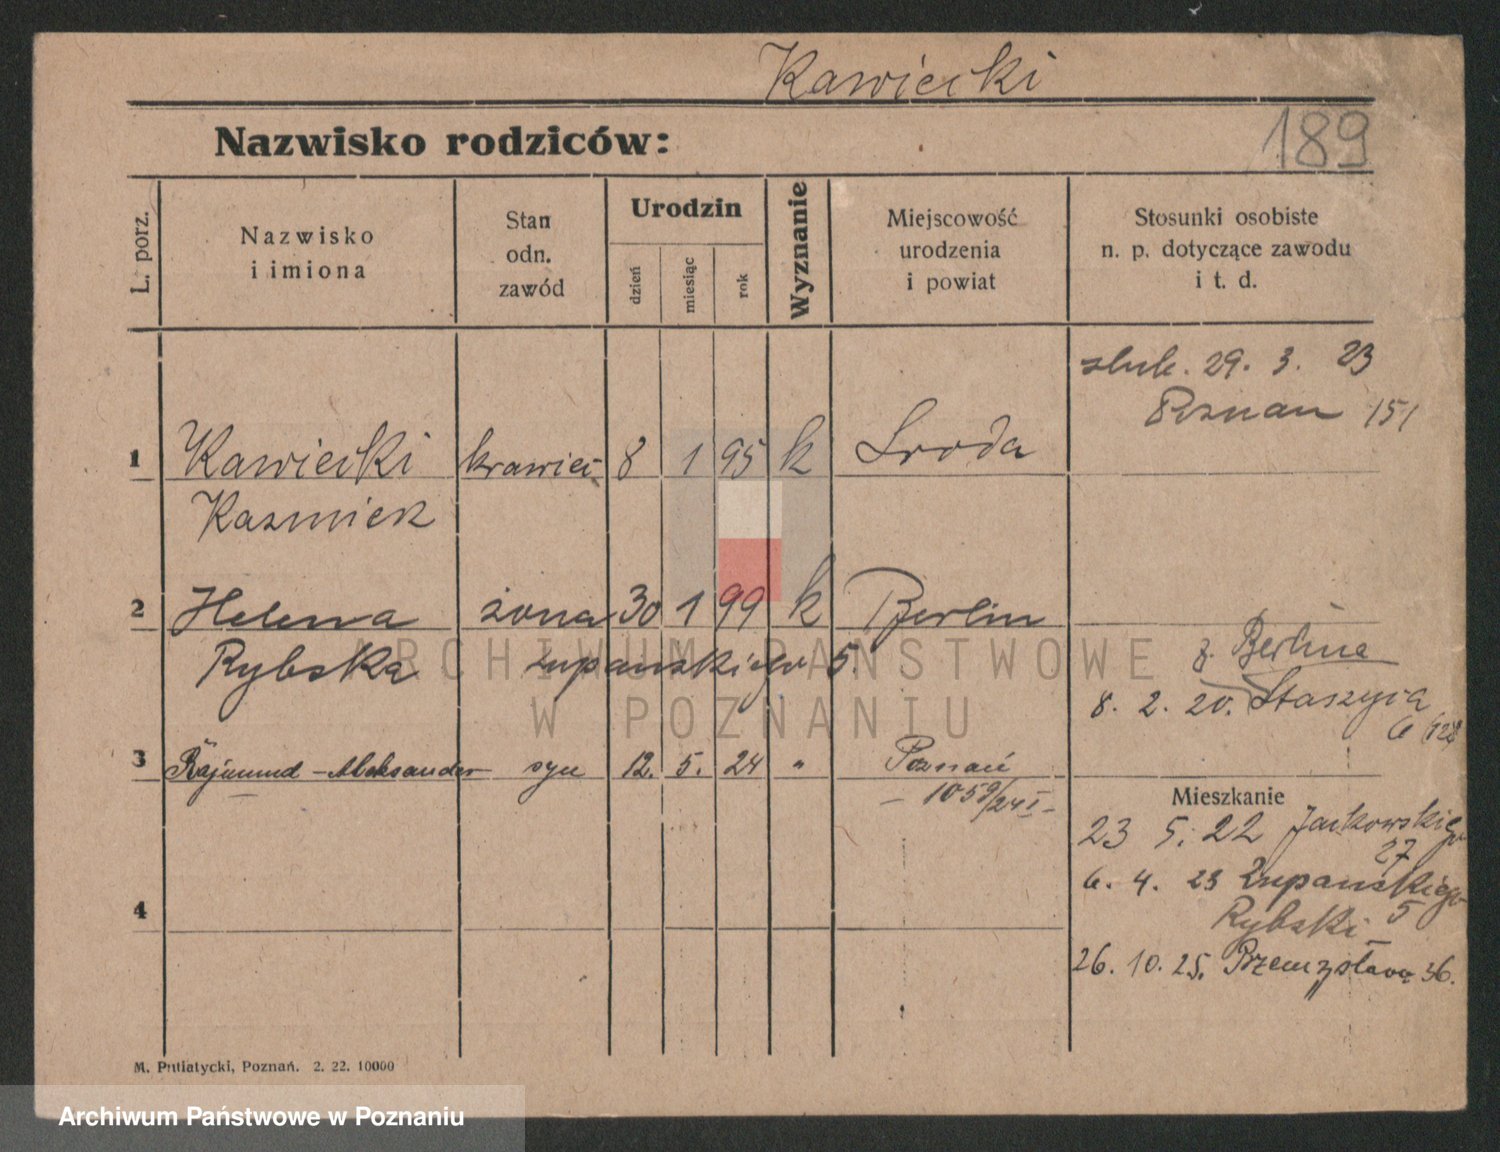 Kawiecki
189
Nazwisko rodziców:
L. porz.
Nazwisko i imiona
Stan odn. zawód
Urodzin
dzień
miesiąc
rok
Wyznanie
Miejscowość urodzenia i powiat
Stosunki osobiste n. p. dotyczące zawodu i t. d.
ślub. 29. 3. 23
Poznan 151
1 Kawiecki krawiec 8 1 95 k Sroda
Kazmierz
2 Helena żona 30 1 99 k Berlin
Rybska Żupanskiego 5.
z. Berlina
8. 2. 20. Staszyca
6
3 Rajmund-Aleksander syn 12. 5. 24 " Poznań
- 1059/24 I -
Mieszkanie
23 5. 22 Jackowskiego
27
6. 4. 23 Żupanskiego
Rybski 5
4
26. 10. 25. Przemysława 36.
M. Putiatycki, Poznań. 2. 22. 10000
ARCHIWUM PAŃSTWOWE
W POZNANIU
Archiwum Państwowe w Poznaniu